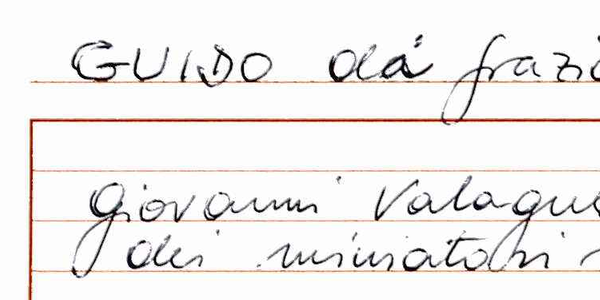 GUIDO dá frazi
Giovanni Valague
dei miniatori